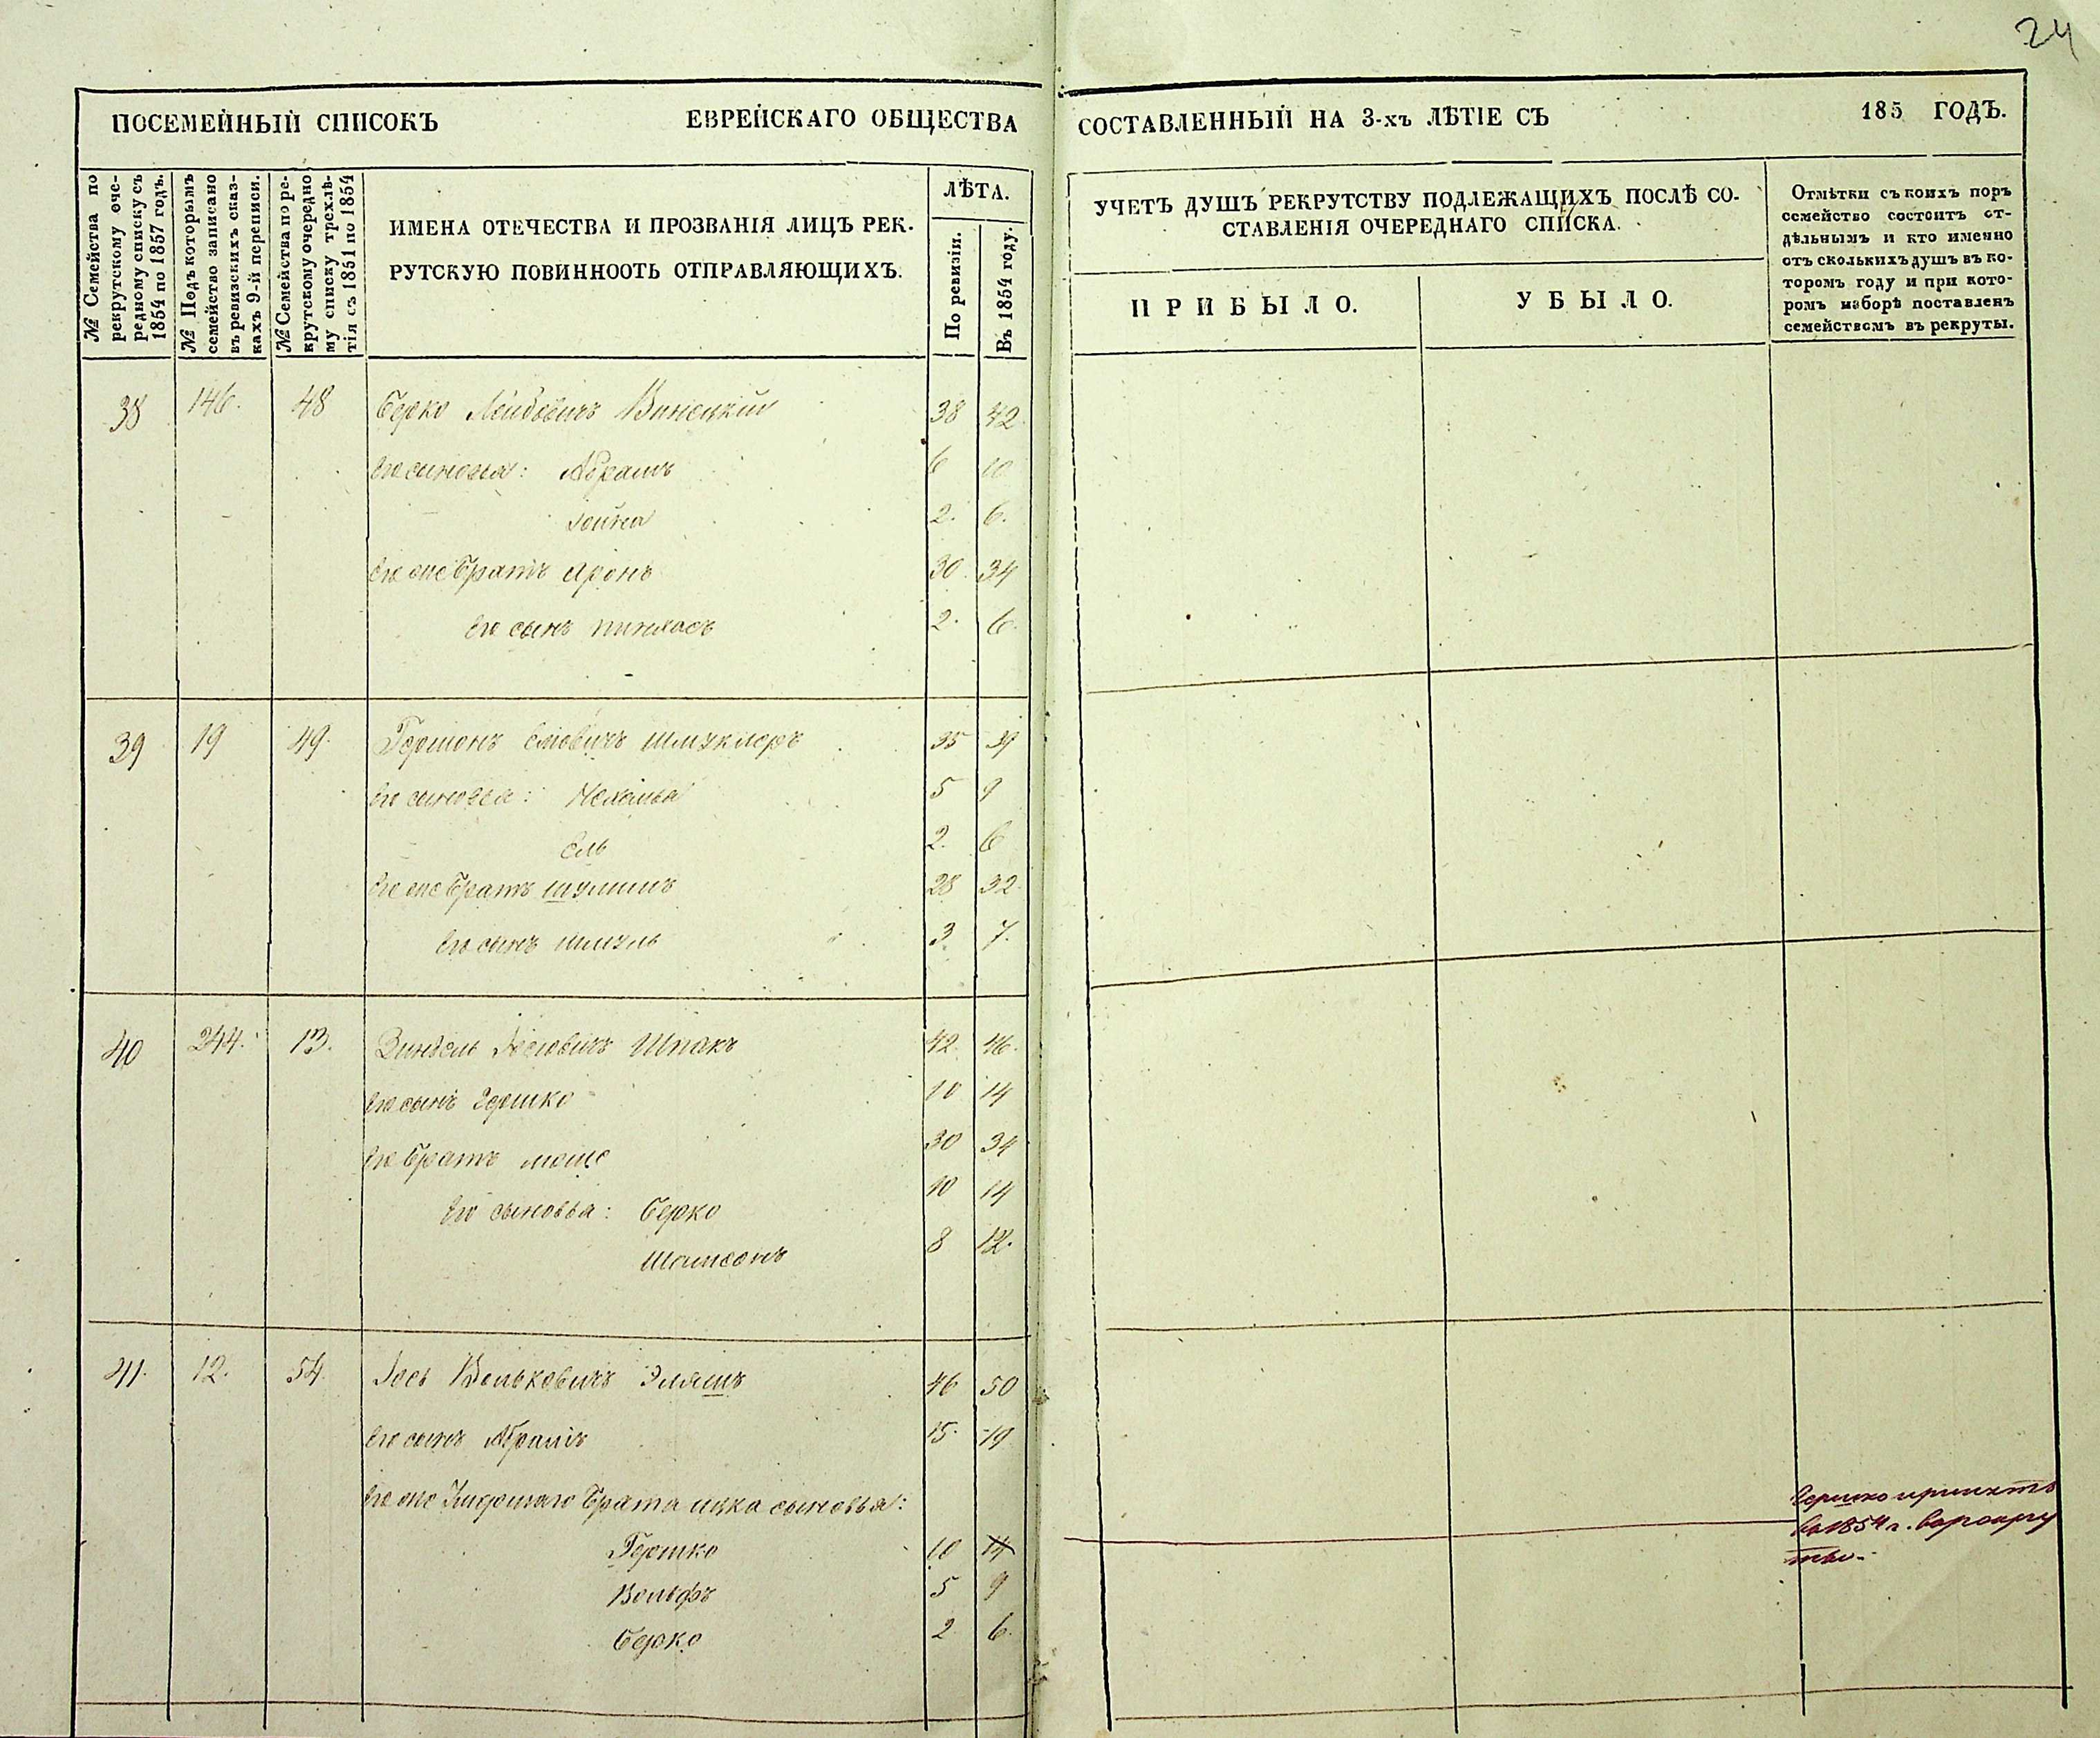 24
ПОСЕМЕЙНЫЙ СПИСОКЪ ЕВРЕЙСКАГО ОБЩЕСТВА СОСТАВЛЕННЫЙ НА 3-хъ ЛѢТІЕ СЪ 185 ГОДЪ.
№ Семейства по
рекрутскому оче-
редному списку съ
1854 по 1857 годъ.
№ Подъ которымъ
семейство записано
въ ревизскихъ сказ-
кахъ 9-й переписи.
№ Семейства по ре-
крутскому очередно
му списку трехлѣ-
тія съ 1851 по 1854
ИМЕНА ОТЕЧЕСТВА И ПРОЗВАНІЯ ЛИЦЪ РЕК.
РУТСКУЮ ПОВИННООТЬ ОТПРАВЛЯЮЩИХЪ.
ЛѢТА.
По ревизіи.
Въ 1854 году.
УЧЕТЪ ДУШЪ РЕКРУТСТВУ ПОДЛЕЖАЩИХЪ ПОСЛѢ СО-
СТАВЛЕНІЯ ОЧЕРЕДНАГО СПИСКА.
ПРИБЫЛО.
УБЫЛО.
Отмѣтки съ коихъ поръ
семейство состоитъ от-
дѣльнымъ и кто именно
отъ сколькихъ душъ въ ко-
торомъ году и при кото-
ромъ наборѣ поставленъ
семействомъ въ рекруты.
38 146. 48 Берко Лейбовичъ Винецкий 38 42
его сыновья: Абрамъ 6 10
Хойна 2. 6.
его же братъ Аронъ 30. 34
его сынъ Пинхасъ 2. 6.
39 19 49. Гершонъ Елiовичъ Шмуклеръ 35 39
его сыновья: Нехемья 5 9
Ель 2. 6
его же братъ Шулимъ 28 32
его сынъ Шмуль 3 7.
40 244. 13. Зиндель Шпакъ 42 46.
его сынъ Гершко 10 14
его братъ Моше 30 34
его сыновья: Берко 10 14
Шамсонъ 8 12.
41. 12. 54. Іось Вольковичъ Эляшъ 46 50
его сынъ Абрамъ 15. 19
его же умершаго брата Ицка сыновья:
Гершко 10 14
Вольфъ 5 9
Берко 2 6.
Гершко принятъ
въ 1854 г. въ рекру
ты.